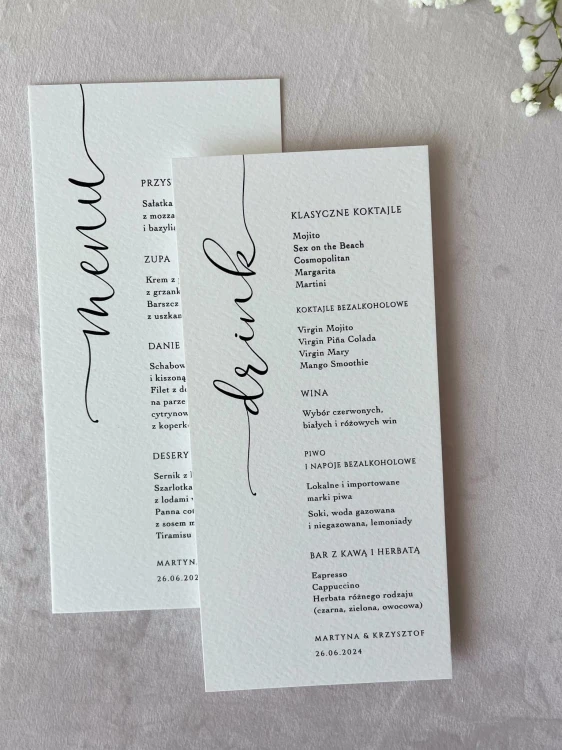 menu
Sałatka
z mozza
i bazylią
ZUPA
Krem z
z grzank
Barszcz
z uszkam
DANIE
Schabow
i kiszoną
Filet z
na parze
cytrynow
z koperk
DESERY
Sernik z
Szarlotka
z lodami
Panna cot
z sosem m
Tiramisu
MARTYNA
26.06.202
drink
KLASYCZNE KOKTAJLE
Mojito
Sex on the Beach
Cosmopolitan
Margarita
Martini
KOKTAJLE BEZALKOHOLOWE
Virgin Mojito
Virgin Piña Colada
Virgin Mary
Mango Smoothie
WINA
Wybór czerwonych,
białych i różowych win
PIWO
I NAPOJE BEZALKOHOLOWE
Lokalne i importowane
marki piwa
Soki, woda gazowana
i niegazowana, lemoniady
BAR Z KAWĄ I HERBATĄ
Espresso
Cappuccino
Herbata różnego rodzaju
(czarna, zielona, owocowa)
MARTYNA & KRZYSZTOF
26.06.2024